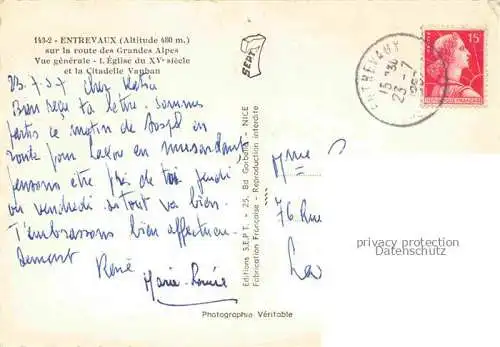 143-2 - ENTREVAUX (Altitude 480 m.)
sur la route des Grandes Alpes
Vue générale - L'Église du XVe siècle
et la Citadelle Vauban
SEPT
ENTREVAUX
15 H30
23 - 7
15F
23.7.57 Cher Katia
Bien reçu ta lettre. Sommes
partis ce matin de Sospel en
route pour en musardant,
pensons être près de toi jeudi
ou vendredi si tout va bien.
T'embrassons bien affectueu-
sement
René
Marie-Louise
Editions S.E.P.T. - 25, Bd Gorbella - NICE
Fabrication Française - Reproduction interdite
Mme
76 Rue
privacy protection
Datenschutz
Photographie Véritable